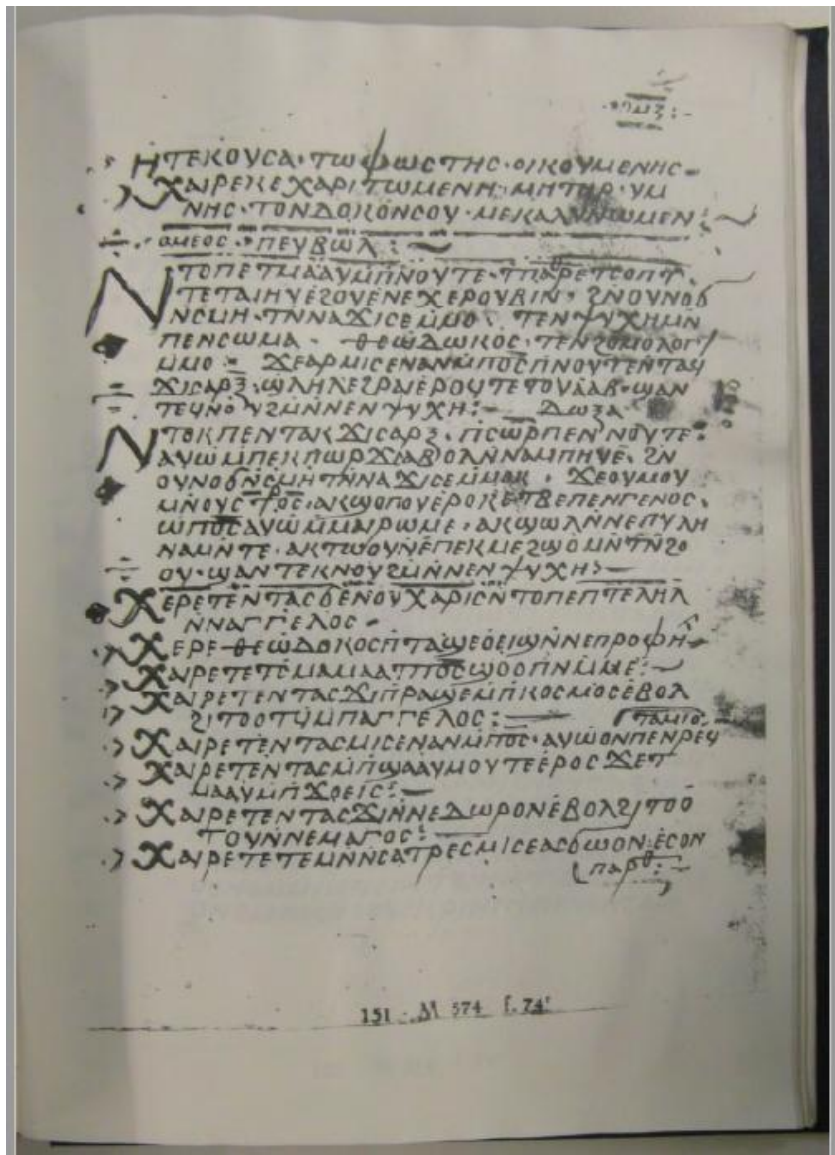 ⲏⲧⲉⲕⲟⲩⲥⲁ · ⲧⲱⲫⲱⲥⲧⲏⲥ · ⲟⲓⲕⲟⲩⲙⲉⲛⲏⲥ
ⲭⲁⲓⲣⲉⲕⲉⲭⲁⲣⲓⲧⲱⲙⲉⲛⲏ · ⲙⲏⲧⲏⲣ · ⲩⲙ
ⲛⲏⲥ · ⲧⲟⲛⲇⲟⲕⲟⲛⲥⲟⲩ ·
ⲟⲙⲉⲟⲥ · ⲡⲉⲩⲃⲱⲗ :
ⲛⲧⲟⲡⲉⲧⲙⲁⲁⲩⲙⲡⲛⲟⲩⲧⲉ · ⲧⲡⲁⲣⲉⲧⲥⲟⲡⲧ ·
ⲧⲉⲧⲁⲓⲏⲩⲉϩⲟⲩⲉⲛⲉⲭⲉⲣⲟⲩⲃⲓⲛ · ϩⲛⲟⲩⲛⲟϭ
ⲛⲥⲙⲏ · ⲧⲛⲛⲁϫⲓⲥⲉⲙⲙⲟ · ⲧⲉⲛⲯⲩⲭⲏⲙⲛ
ⲡⲉⲛⲥⲱⲙⲁ · ⲑⲉⲱⲇⲱⲕⲟⲥ · ⲧⲉⲛϩⲟⲙⲟⲗⲟⲅ/
ⲙⲙⲟ : ϫⲉⲁⲣⲙⲓⲥⲉⲛⲁⲛⲙⲡⲟⲥⲡⲛⲟⲩⲧⲉⲛⲧⲁϥ
ϫⲓⲥⲁⲣⲝ · ϣⲗⲏⲗⲉϩⲣⲁⲓⲉⲣⲟϥⲡⲉⲧⲟⲩⲁⲁⲃ · ϣⲁⲛ
ⲧⲉϥⲛⲟⲩϩⲙⲛⲛⲉⲛⲯⲩⲭⲏ : ⲇⲱⲝⲁ
ⲛⲧⲟⲕⲡⲉⲛⲧⲁⲕϫⲓⲥⲁⲣⲝ · ⲡⲥⲱⲣⲡⲉⲛⲛⲟⲩⲧⲉ ·
ⲁⲩⲱⲙⲡⲉⲕⲡⲱⲣϫⲓⲁⲃⲟⲗⲛⲛⲁⲙⲡⲏⲩⲉ · ϩⲛ
ⲟⲩⲛⲟϭⲛⲥⲙⲏⲧⲛⲛⲁϫⲓⲥⲉⲙⲙⲟⲕ · ϫⲉⲟⲩⲙⲟⲩ
ⲙⲛⲟⲩⲥⲧⲣⲟⲥ · ⲁⲕϣⲟⲡⲟⲩⲉⲣⲟⲕⲉⲧⲃⲉⲡⲉⲛⲅⲉⲛⲟⲥ ·
ⲱⲡⲟⲥⲁⲩⲱⲙⲙⲁⲓⲣⲱⲙⲉ · ⲁⲕϣⲱⲗⲛⲛⲉⲡⲩⲗⲏ
ⲛⲁⲙⲛⲧⲉ · ⲁⲕⲧⲱⲟⲩⲛⲉⲡⲉⲕⲙⲉϩϣⲟⲙⲛⲧⲛϩⲟ
ⲟⲩ · ϣⲁⲛⲧⲉⲕⲛⲟⲩϩⲙⲛⲛⲉⲛⲯⲩⲭⲏ :
ⲭⲉⲣⲉⲧⲉⲛⲧⲁⲥϭⲉⲛⲟⲩⲭⲁⲣⲓⲥⲛⲧⲟⲡⲉⲡⲧⲉⲗⲏⲗ
ⲛⲛⲁⲅⲅⲉⲗⲟⲥ ·
ⲭⲉⲣⲉⲑⲉⲱⲇⲟⲕⲟⲥⲛⲧⲁϣⲉⲟⲉⲓϣⲛⲛⲉⲡⲣⲟⲫⲏ
ⲭⲁⲓⲣⲉⲧⲉⲧⲥⲙⲁⲙⲁⲁⲧⲡⲟⲥϣⲟⲟⲡⲛⲙⲙⲉ :
ⲭⲁⲓⲣⲉⲧⲉⲛⲧⲁⲥϫⲓⲡⲣⲁϣⲉⲙⲡⲕⲟⲥⲙⲟⲥⲉⲃⲟⲗ
ϩⲓⲧⲟⲟⲧϥⲙⲡⲁⲅⲅⲉⲗⲟⲥ :
ⲭⲁⲓⲣⲉⲧⲉⲛⲧⲁⲥⲙⲓⲥⲉⲛⲁⲛⲙⲡⲟⲥ · ⲁⲩⲱⲟⲛⲡⲉⲛⲣⲉϥ
ⲭⲁⲓⲣⲉⲧⲉⲛⲧⲁⲥⲙⲡϣⲁⲁⲩⲙⲟⲩⲧⲉⲉⲣⲟⲥϫⲉⲧ
ⲙⲁⲁⲩⲙⲡϫⲟⲉⲓⲥ :
ⲭⲁⲓⲣⲉⲧⲉⲛⲧⲁⲥϫⲓⲛⲛⲉⲇⲱⲣⲟⲛⲉⲃⲟⲗϩⲓⲧⲟⲟ
ⲧⲟⲩⲛⲛⲉⲙⲁⲅⲟⲥ :
ⲭⲁⲓⲣⲉⲧⲉⲧⲉⲙⲛⲛⲥⲁⲧⲣⲉⲥⲙⲓⲥⲉⲁⲥϭⲱⲟⲛ · ⲉⲥⲟⲛ
ⲡⲁⲣⲑ :
151 - M 574 f. 74